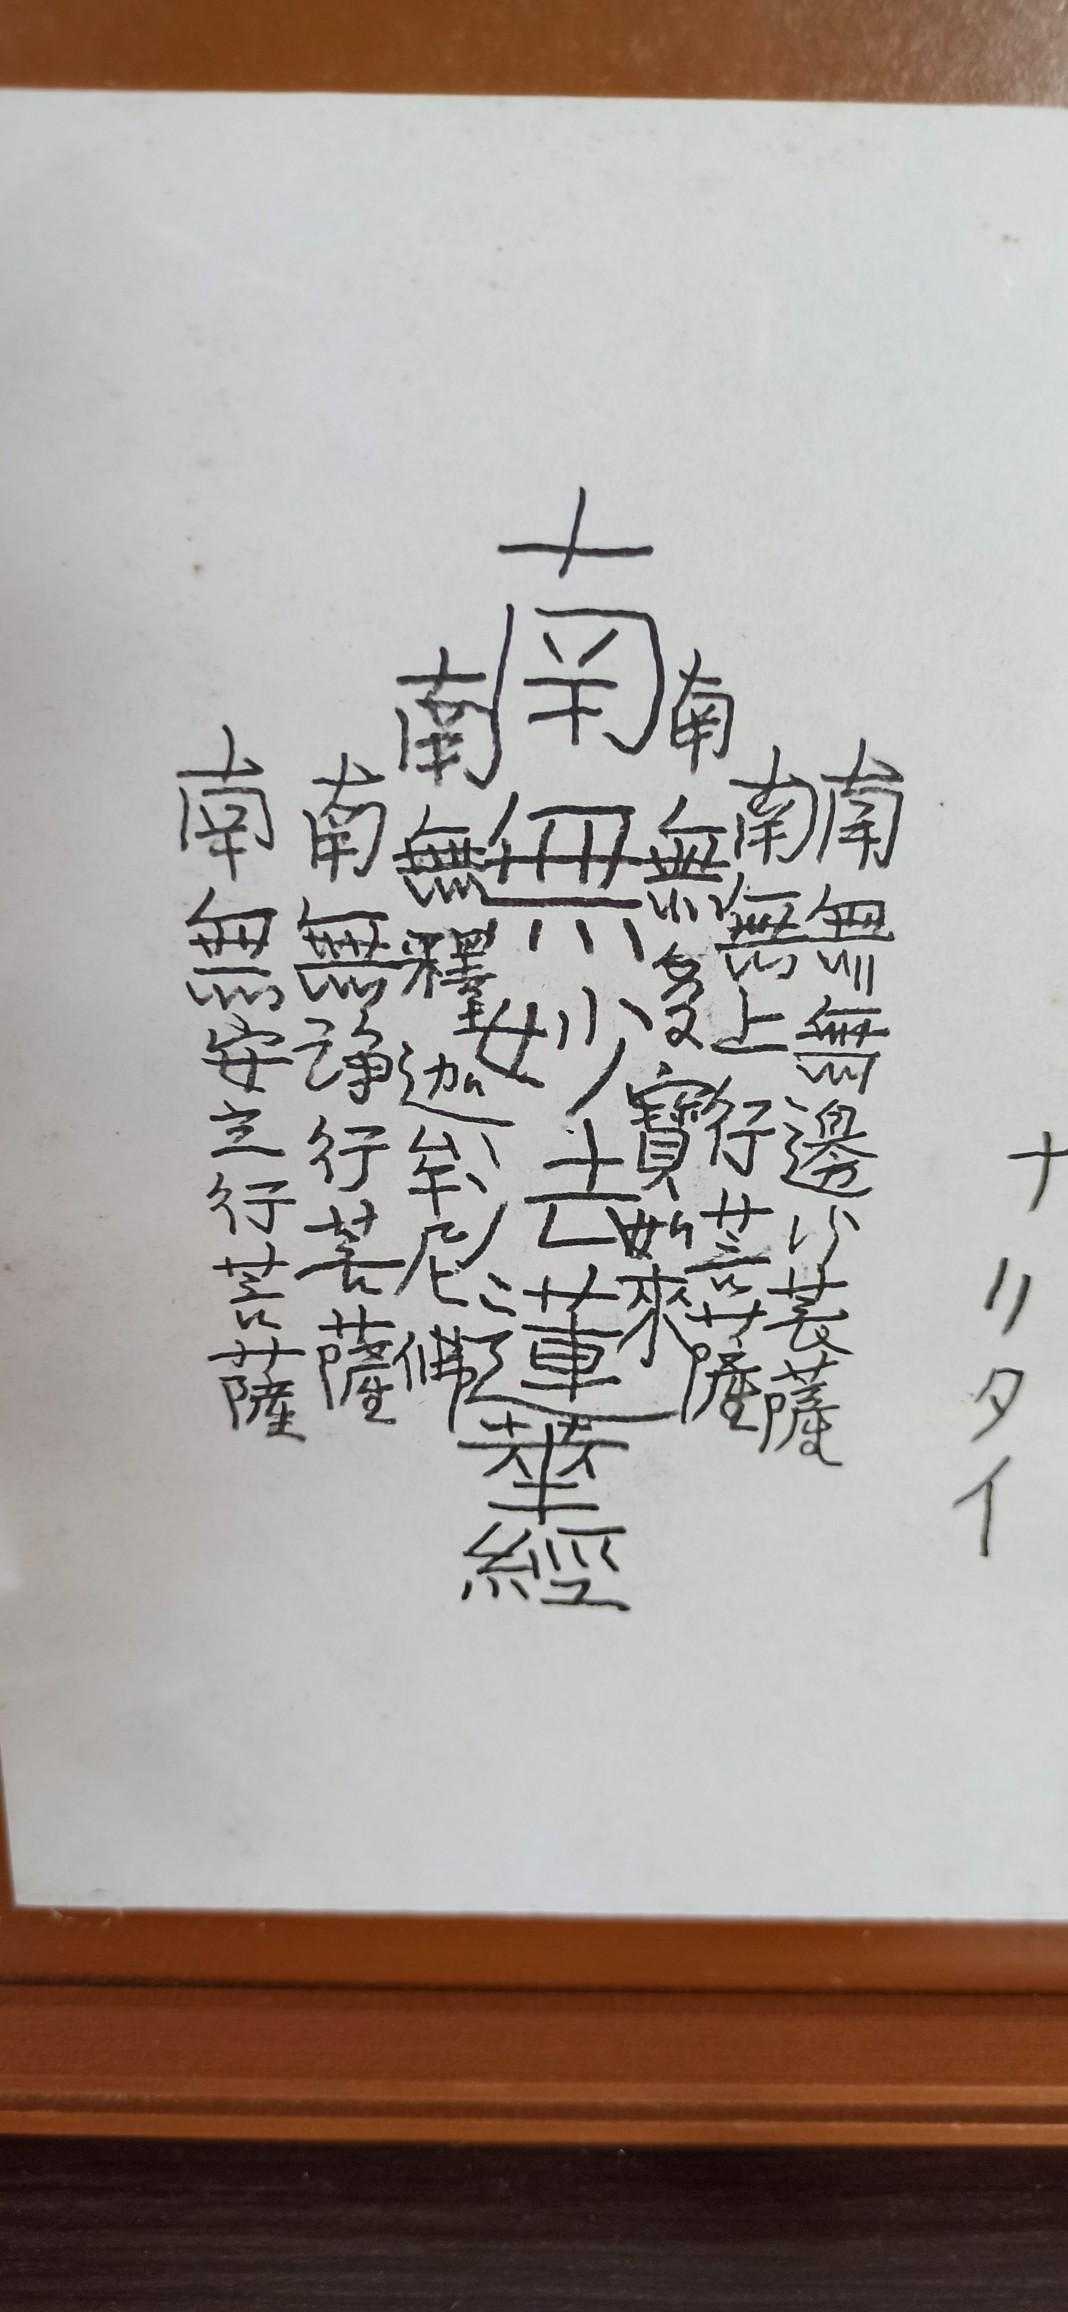 ナリタイ
南無無邊行菩薩
南無上行菩薩
南無多寶如來
南無妙法蓮華經
南無釋迦牟尼佛
南無淨行菩薩
南無安立行菩薩